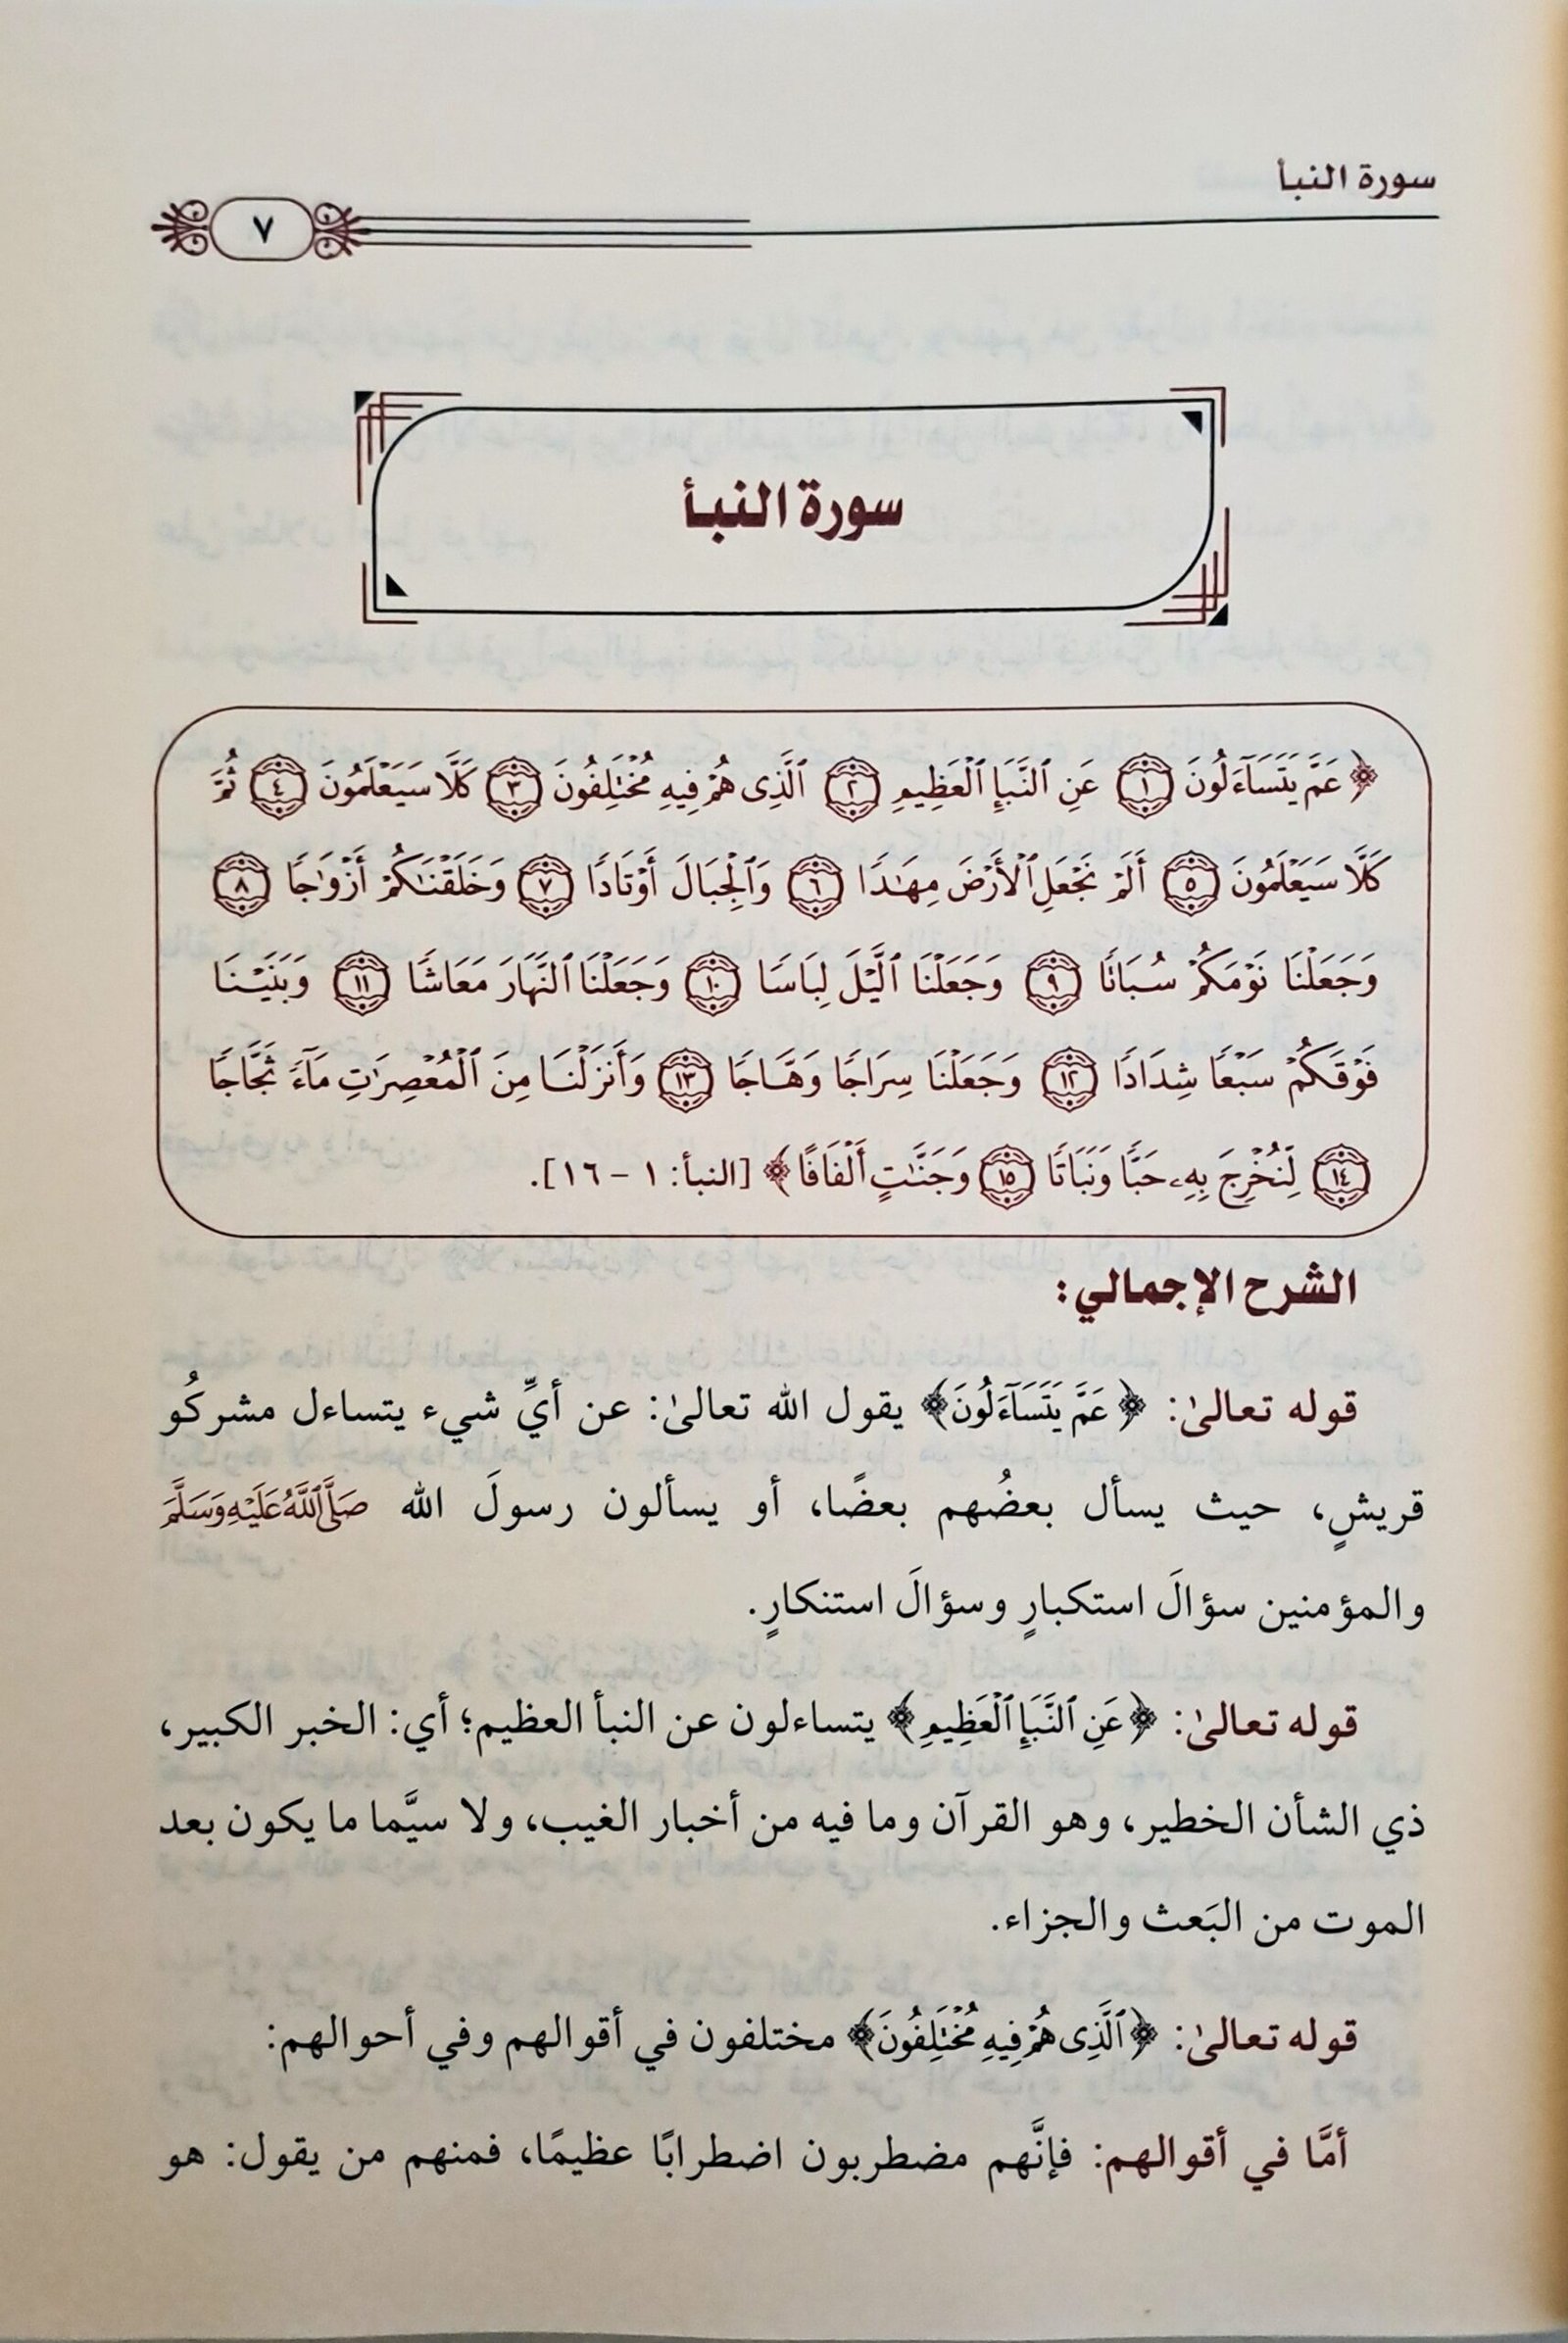 سورة النبأ
٧
سورة النبأ
﴿عَمَّ يَتَسَآءَلُونَ ١ عَنِ ٱلنَّبَإِ ٱلْعَظِيمِ ٢ ٱلَّذِى هُمْ فِيهِ مُخْتَلِفُونَ ٣ كَلَّا سَيَعْلَمُونَ ٤ ثُمَّ
كَلَّا سَيَعْلَمُونَ ٥ أَلَمْ نَجْعَلِ ٱلْأَرْضَ مِهَٰدًا ٦ وَٱلْجِبَالَ أَوْتَادًا ٧ وَخَلَقْنَٰكُمْ أَزْوَٰجًا ٨
وَجَعَلْنَا نَوْمَكُمْ سُبَاتًا ٩ وَجَعَلْنَا ٱلَّيْلَ لِبَاسًا ١٠ وَجَعَلْنَا ٱلنَّهَارَ مَعَاشًا ١١ وَبَنَيْنَا
فَوْقَكُمْ سَبْعًا شِدَادًا ١٢ وَجَعَلْنَا سِرَاجًا وَهَّاجًا ١٣ وَأَنزَلْنَا مِنَ ٱلْمُعْصِرَٰتِ مَآءً ثَجَّاجًا
١٤ لِّنُخْرِجَ بِهِۦ حَبًّا وَنَبَاتًا ١٥ وَجَنَّٰتٍ أَلْفَافًا﴾ [النبأ: ١ - ١٦].
الشرح الإجمالي:
قوله تعالىٰ: ﴿عَمَّ يَتَسَآءَلُونَ﴾ يقول الله تعالىٰ: عن أيِّ شيء يتساءل مشركُو
قريشٍ، حيث يسأل بعضُهم بعضًا، أو يسألون رسولَ الله صَلَّى ٱللَّهُ عَلَيْهِ وَسَلَّمَ
والمؤمنين سؤالَ استكبارٍ وسؤالَ استنكارٍ.
قوله تعالىٰ: ﴿عَنِ ٱلنَّبَإِ ٱلْعَظِيمِ﴾ يتساءلون عن النبأ العظيم؛ أي: الخبر الكبير،
ذي الشأن الخطير، وهو القرآن وما فيه من أخبار الغيب، ولا سيَّما ما يكون بعد
الموت من البَعث والجزاء.
قوله تعالىٰ: ﴿ٱلَّذِى هُمْ فِيهِ مُخْتَلِفُونَ﴾ مختلفون في أقوالهم وفي أحوالهم:
أمَّا في أقوالهم: فإنَّهم مضطربون اضطرابًا عظيمًا، فمنهم من يقول: هو